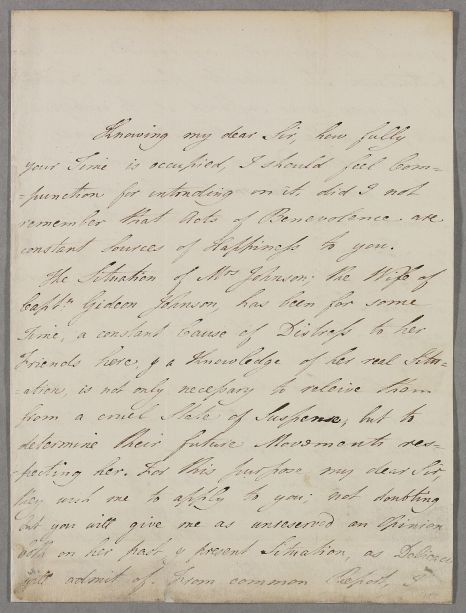 Knowing my dear Sir, how fully
your Time is occupied, I should feel Com=
=punction for intruding on it, did I not
remember that Acts of Benevolence are
constant Sources of Happiness to you.
The Situation of Mrs Johnson; the Wife of
Captn Gideon Johnson, has been for some
Time, a constant Cause of Distress to her
Friends here, & a Knowledge of her real Situ=
=ation, is not only necessary to releive them
from a cruel State of Suspense, but to
determine their future Movements res=
=pecting her. For this purpose my dear Sir,
they wish me to apply to you; not doubting
but you will give me as unreserved an Opinion
both on her past & present Situation, as Delicacy
will admit of. From common Report, I